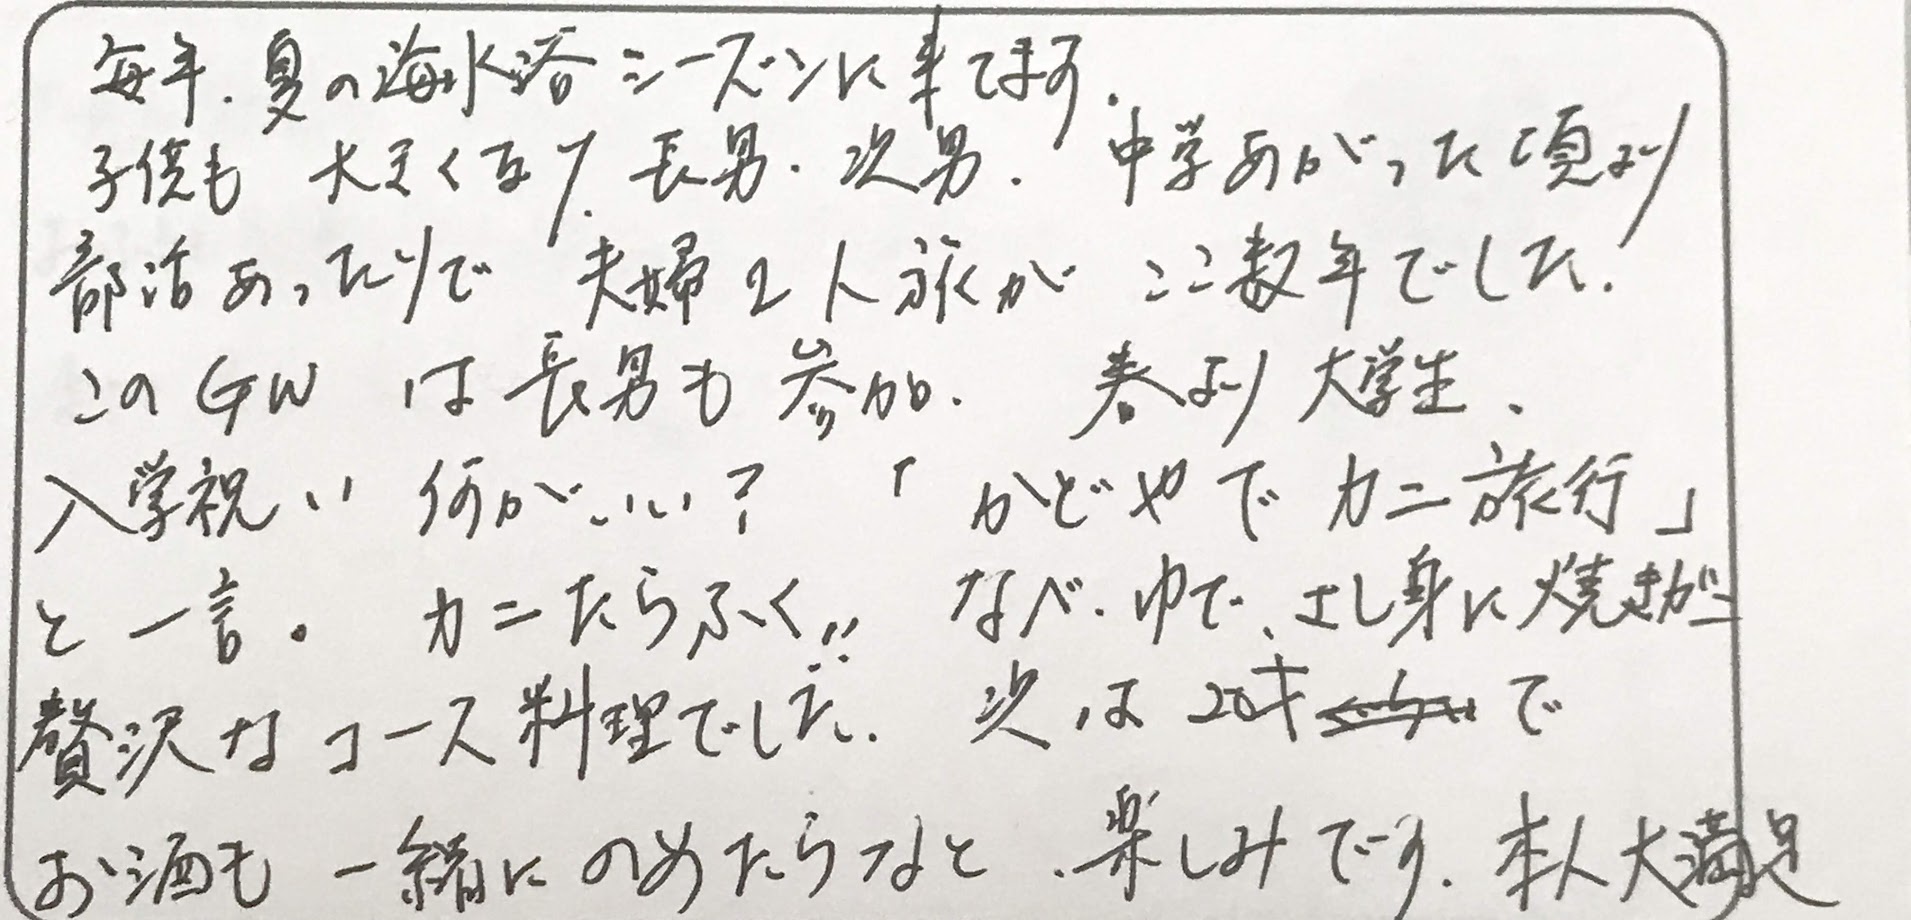 毎年、夏の海水浴シーズンに来てます。
子供も 大きくなり、長男・次男、中学あがった頃より
部活あったりで 夫婦2人旅が ここ数年でした。
このGWは長男も参加。 春より大学生、
入学祝い 何がいい？ 「かどやでカニ旅行」
と一言。 カニたらふく!! なべ、ゆで、さし身に焼きガニ
贅沢なコース料理でした。 次は20才で
お酒も一緒にのめたらなと、楽しみです。本人大満足